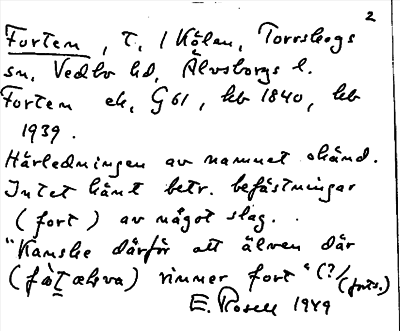 2
Forten, T, i Kölen, Torrskogs
sn, Vedbo hd, Älvsborgs l.
Forten ek, G 61, hb 1840, hb
1939.
Härledningen av namnet okänd.
Intet känt betr. befästningar
(fort) av något slag.
"Kanske därför att älven där
rinner fort" (?)
(forts.)
E. Rosell 1949